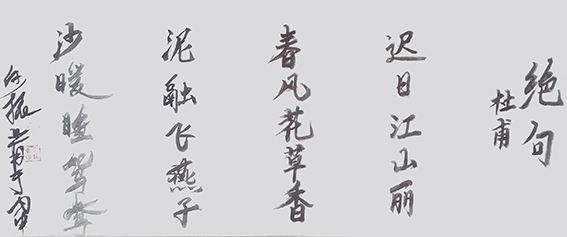 绝句
杜甫
迟日江山丽
春风花草香
泥融飞燕子
沙暖睡鸳鸯